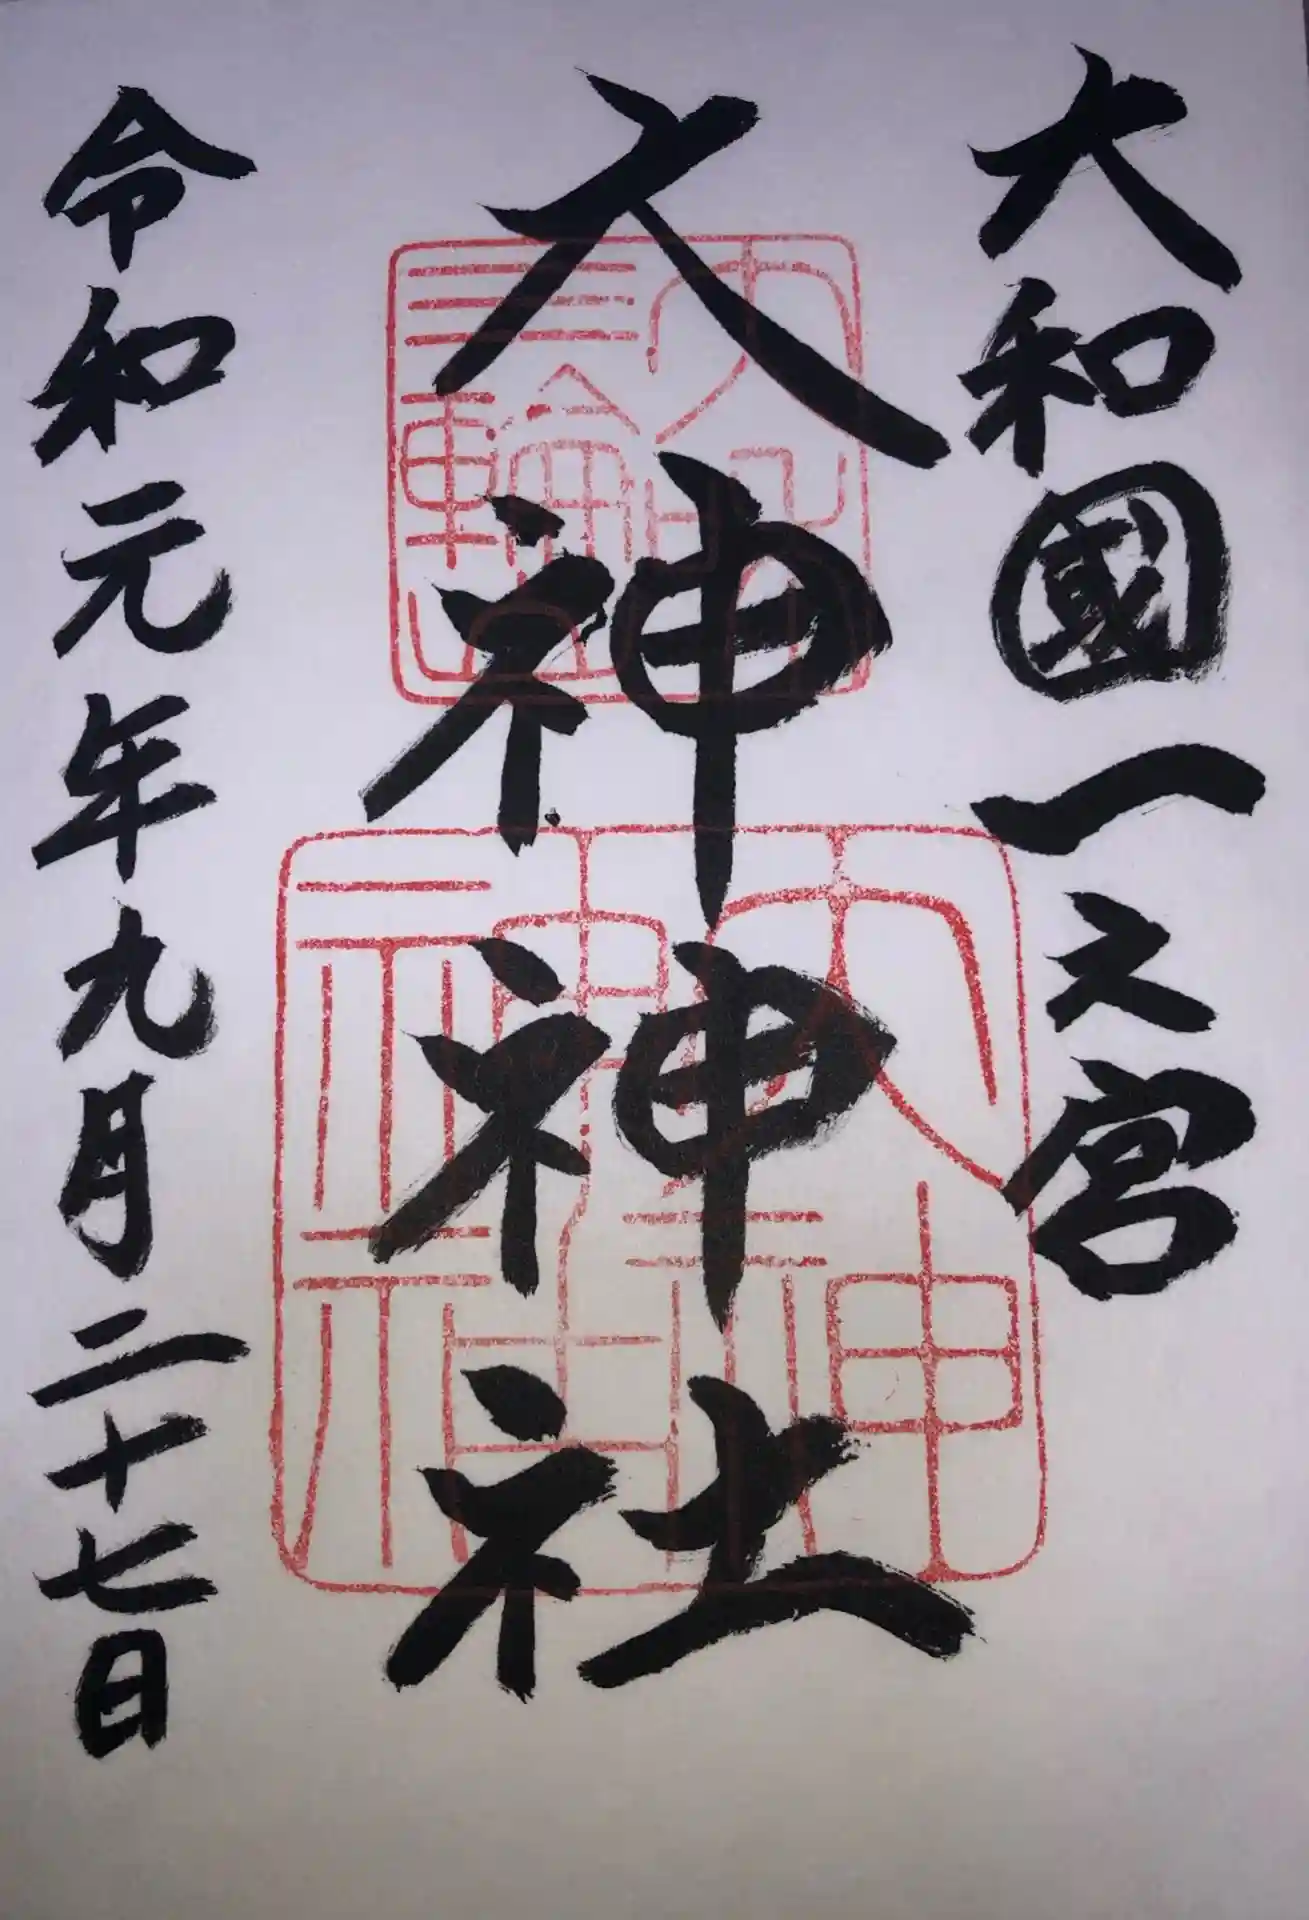 大和國一之宮
大神神社
令和元年九月二十七日
大神
神社